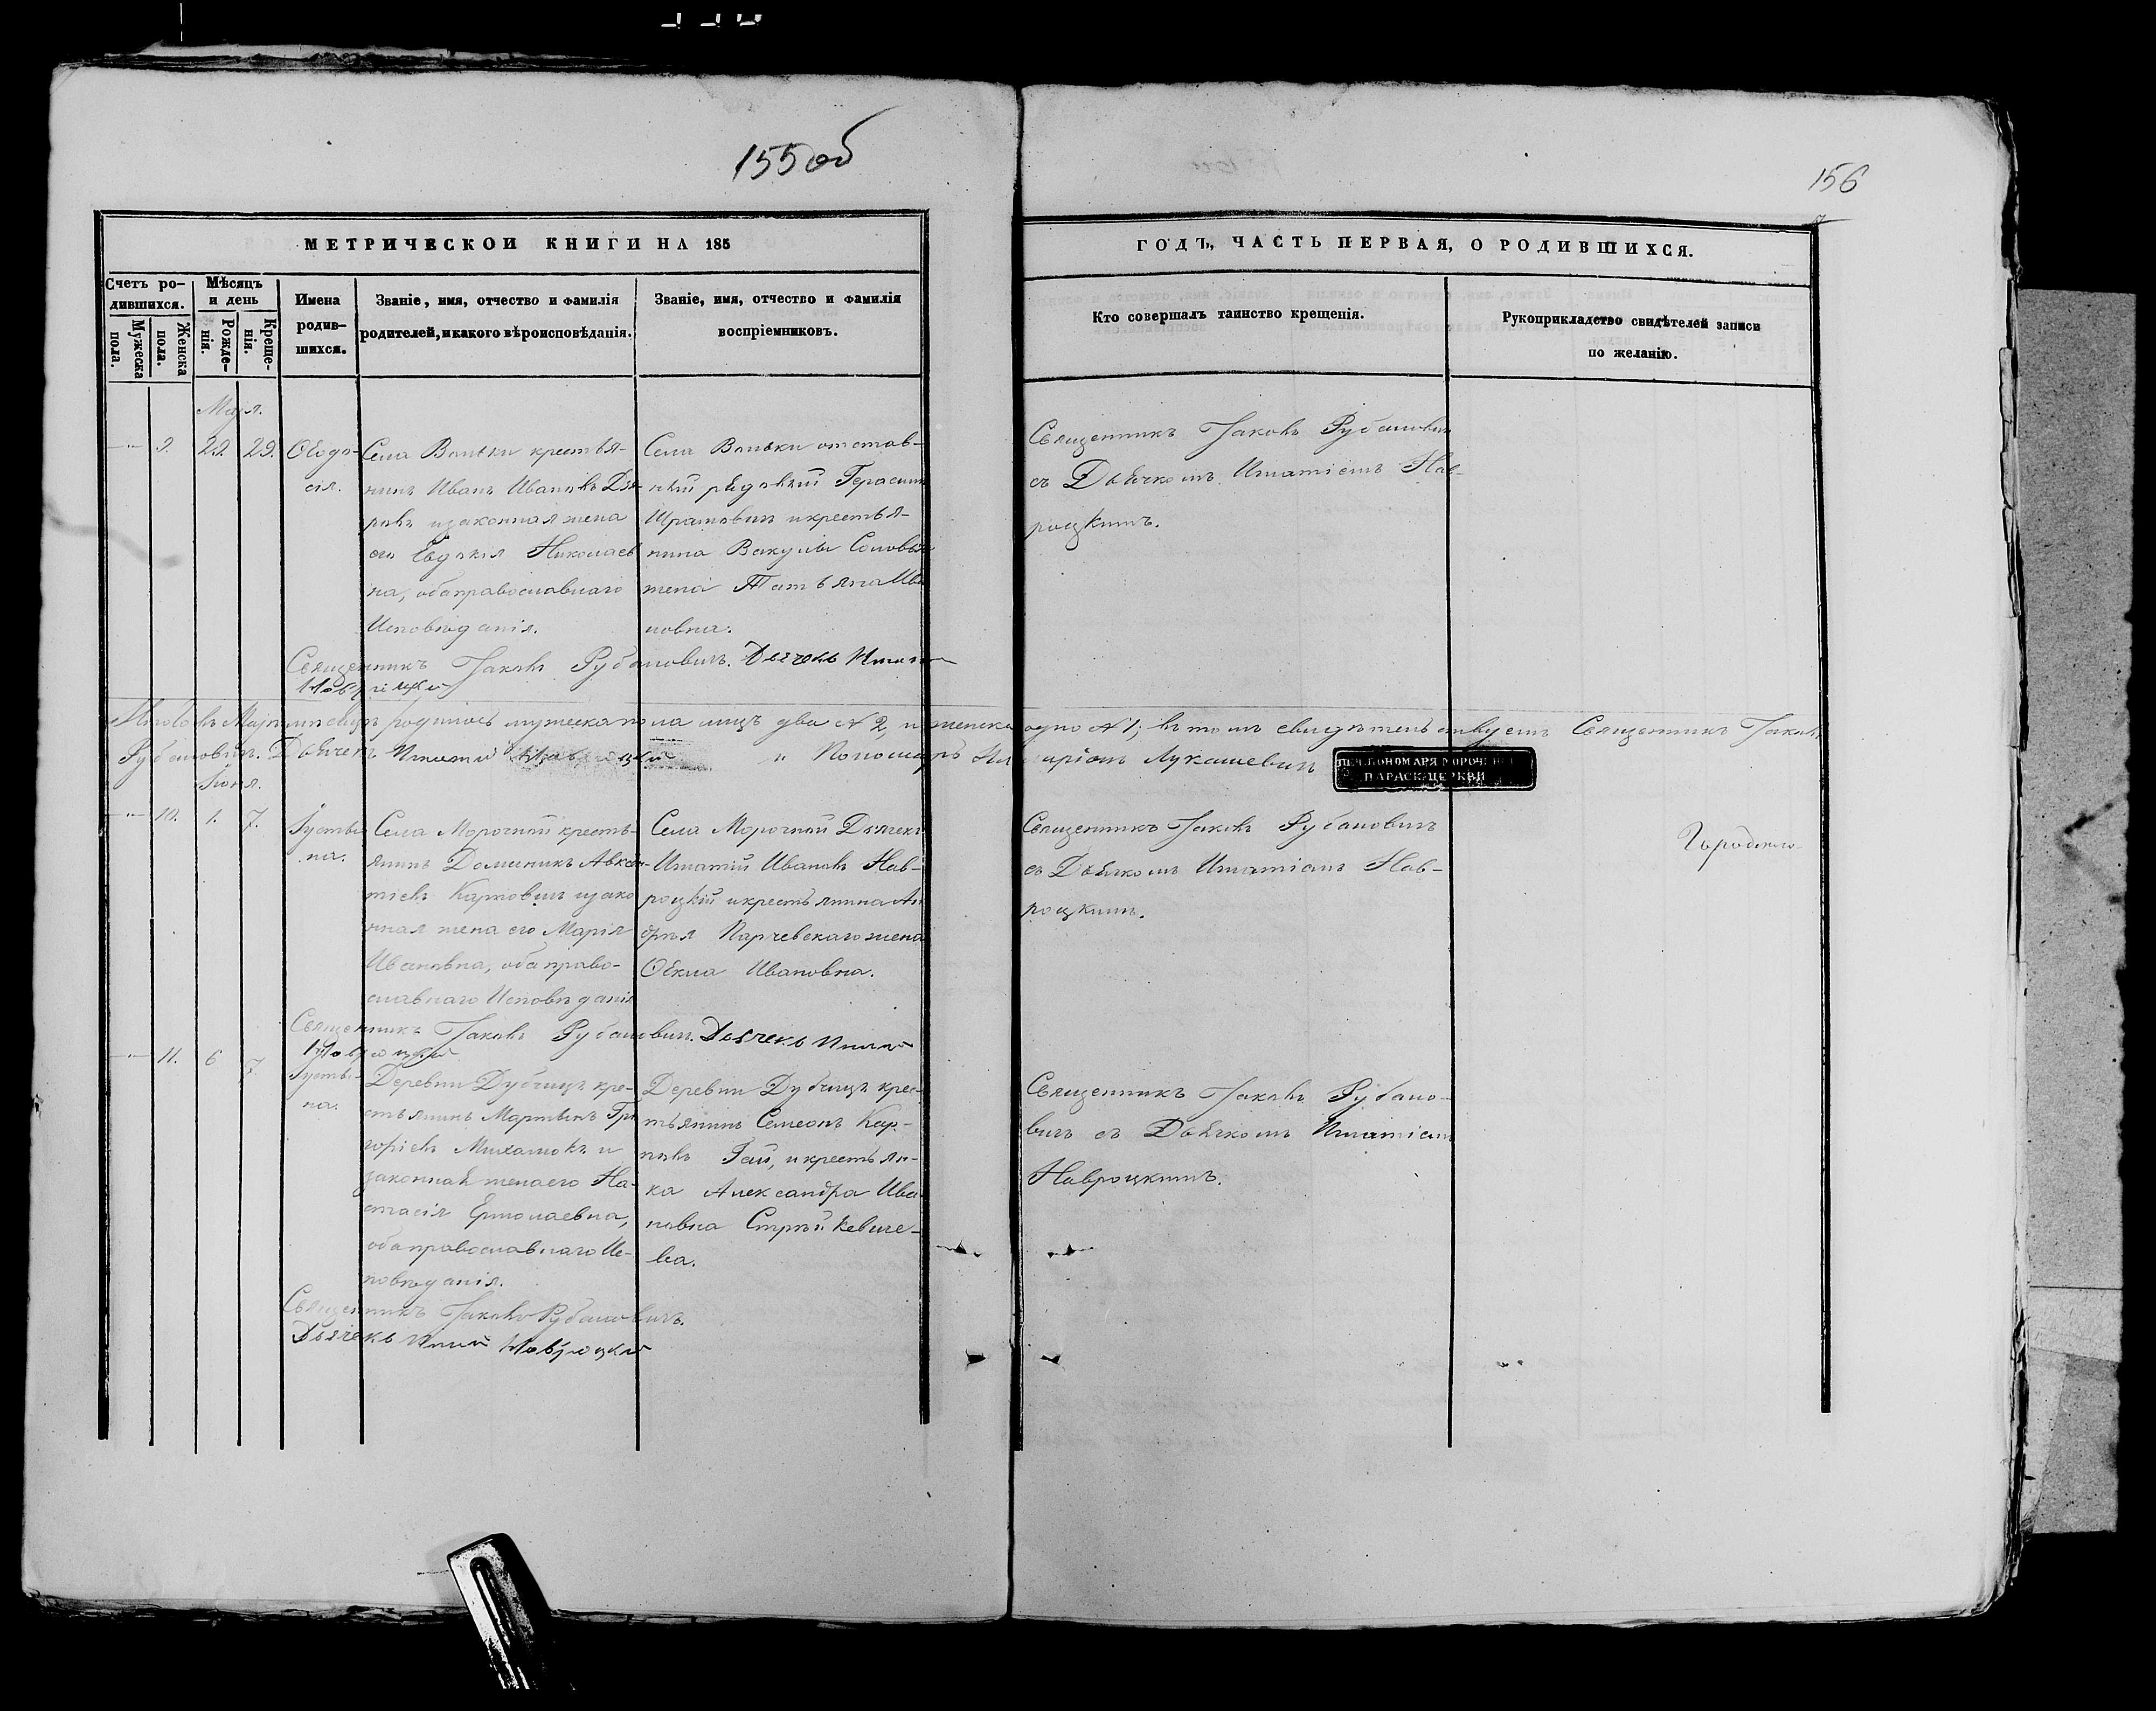 155 об
156
МЕТРИЧЕСКОЙ КНИГИ НА 185
ГОДЪ, ЧАСТЬ ПЕРВАЯ, О РОДИВШИХСЯ.
Счетъ ро-
дившихся.
Мужеска
пола.
Женска
пола.
Мѣсяцъ
и день
Рожде-
нія.
Креще-
нія.
Имена
родив-
шихся.
Званіе, имя, отчество и фамилія
родителей, и какого вѣроисповѣданія.
Званіе, имя, отчество и фамилія
воспріемниковъ.
Кто совершалъ таинство крещенія.
Рукоприкладство свидѣтелей записи
по желанію.
Мая.
9. 22. 29.
Ѳеодо-
сія.
Села Вольки крестья-
нинъ Иванъ Ивановъ
и законная жена
его Евдокія Николаев
на, оба православнаго
Исповѣданія.
Села Вольки отстав-
ный рядовый Герасимъ
и крестья-
нина Вакулы
жена Татьяна Ива
новна.
Священникъ Іаковъ Рубановичъ
съ Дьячкомъ Игнатіемъ Нав-
роцкимъ.
Священникъ Іаковъ Рубановичъ. Дьячекъ Игнатій
Навроцкій
родилось мужеска пола лицъ два № 2, и женска одно № 1; въ томъ свидѣтельствуемъ Священникъ Іаковъ
Рубановичъ. Дьячекъ Игнатій Навроцкій Пономарь Иларіонъ Лукашевичъ
ПЕЧ. ПОНОМАРЯ МОРОЧ
ПАРАСК. ЦЕРКВИ
Іюня.
10. 1. 7.
Іусты
на.
Села Морочной кресть-
янинъ Доминикъ Авксен-
тіевъ Карпович и зако
нная жена его Марія
Ивановна, оба право-
славнаго Исповѣданія
Села Морочной Дьячекъ
Игнатій Ивановъ Нав-
роцкій и крестьянина Ан
дрея Парчевскаго жена
Ѳекла Ивановна.
Священникъ Іаковъ Рубановичъ
съ Дьячкомъ Игнатіемъ Нав-
роцкимъ.
Священникъ Іаковъ Рубановичъ. Дьячекъ Игнатій
Навроцкій
11. 6 7.
Іусты-
на.
Деревни Дубчицъ кре-
стьянинъ Мартинъ Гри
горіевъ Михалюкъ и
законная жена его На-
стасія Ермолаевна,
оба православнаго Ис-
повѣданія.
Деревни Дубчицъ крес-
тьянинъ Семеонъ Кар-
повъ Рай, и крестьян-
ка Александра Ива
новна
ва.
Священникъ Іаковъ Рубано-
вичъ съ Дьячкомъ Игнатіемъ
Навроцкимъ.
Священникъ Іаковъ Рубановичъ.
Дьячекъ Игнатій Навроцкій